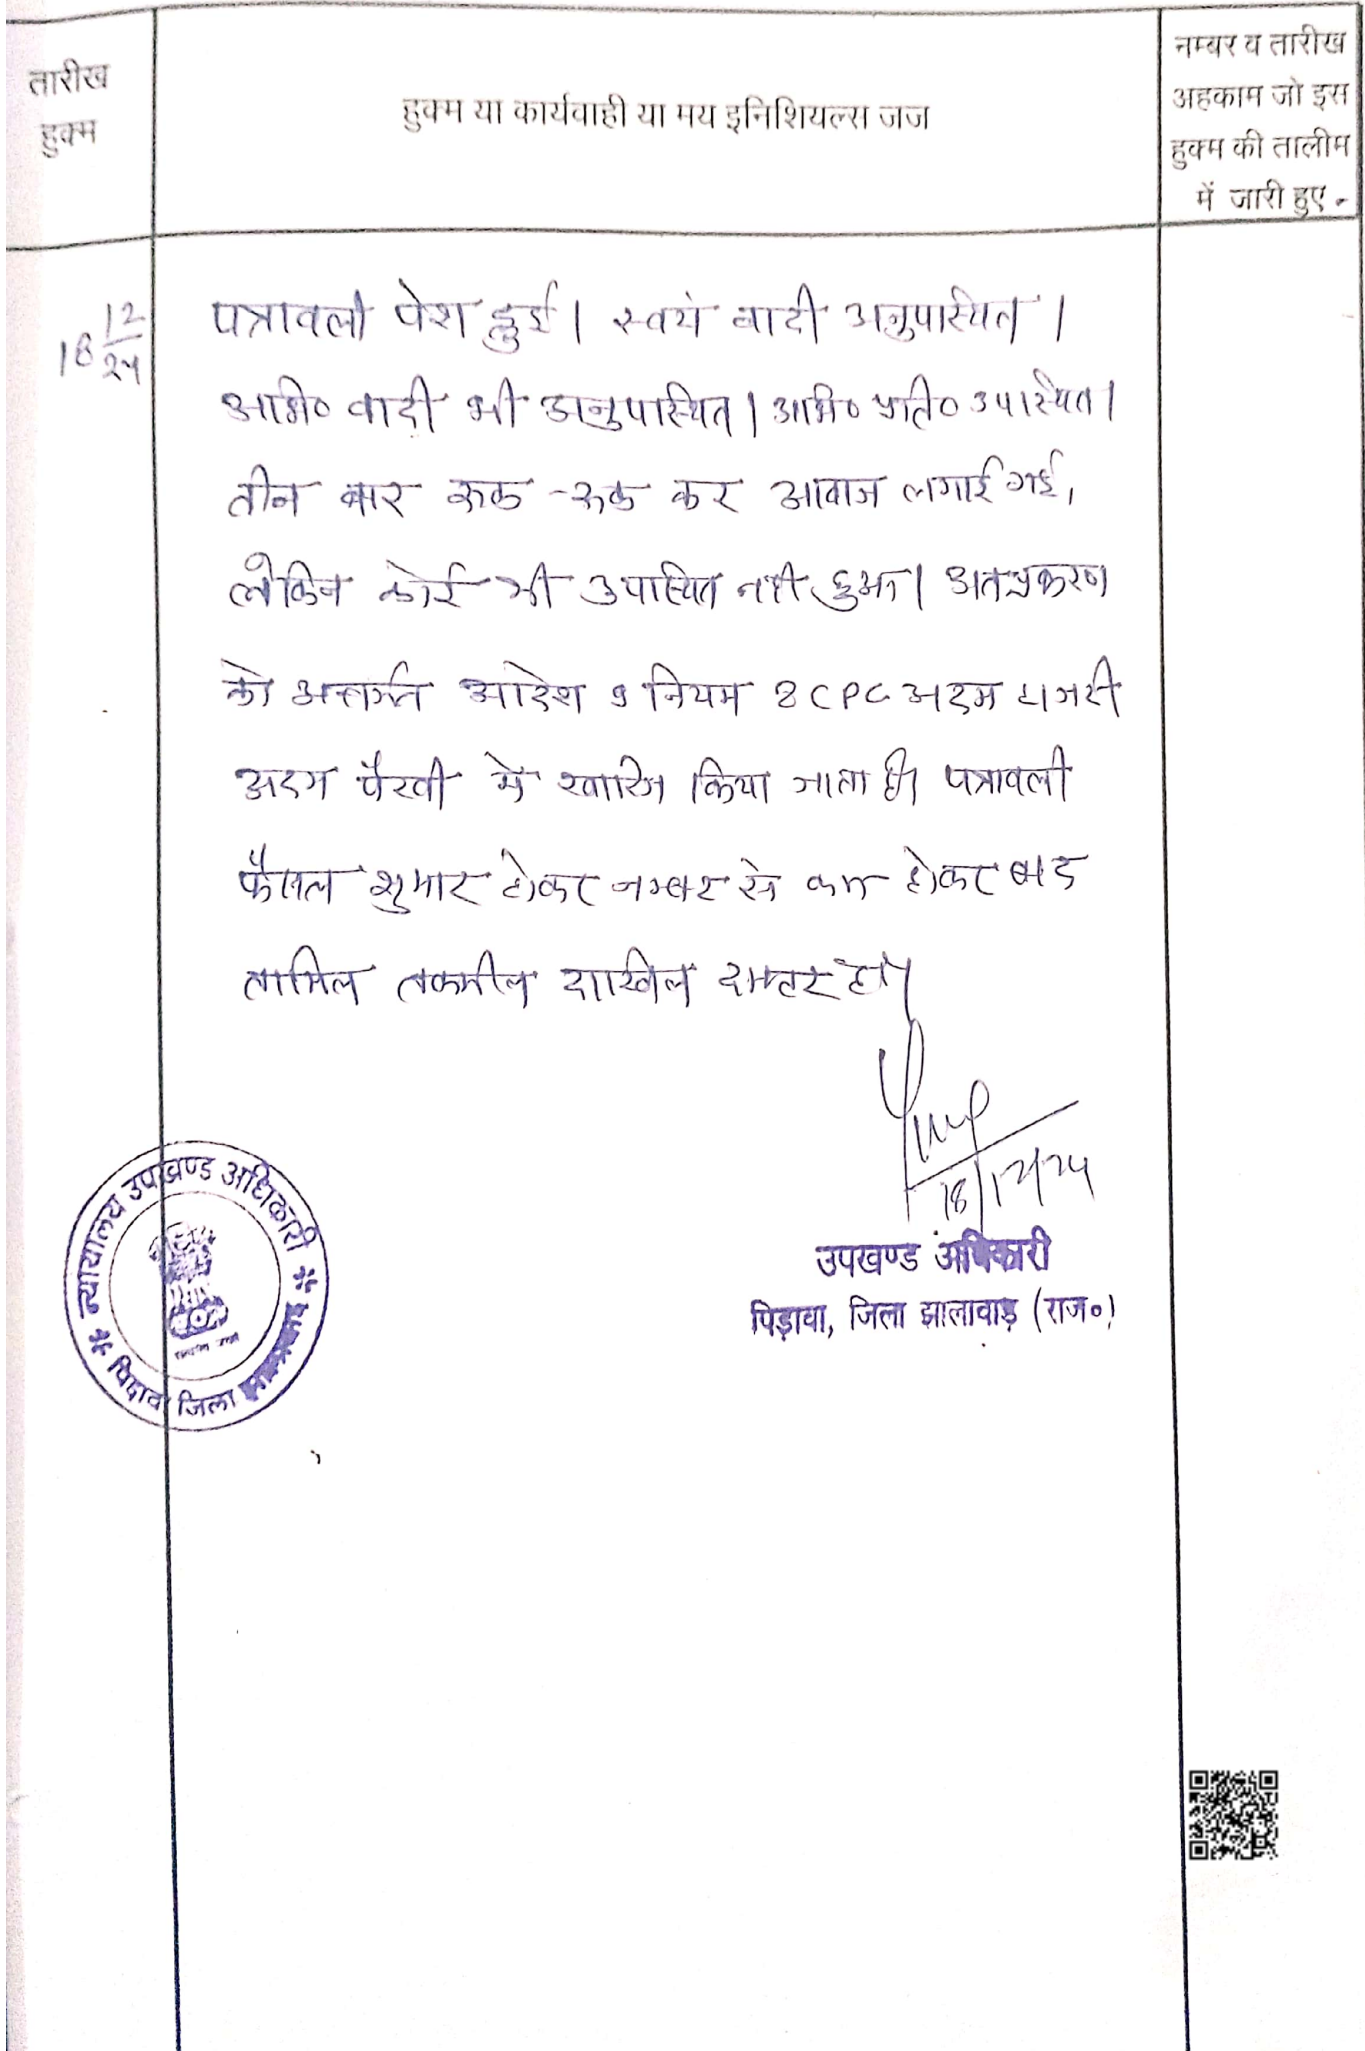 तारीख
हुक्म
हुक्म या कार्यवाही या मय इनिशियल्स जज
नम्बर व तारीख
अहकाम जो इस
हुक्म की तालीम
में जारी हुए.
18 12/24
पत्रावली पेश हुई। स्वयं वादी अनुपास्थित।
अभि० वादी भी अनुपास्थित। अभि० प्रति० उपास्थित।
तीन बार रूक-रूक कर आवाज लगाई गई,
लेकिन कोई भी उपास्थित नही हुआ। अतः प्रकरण
को अन्तर्गत आदेश 9 नियम 8 CPC अदम हाजरी
अदम पैरवी मे खारिज किया जाता है। पत्रावली
फैसल शुमार होकर नम्बर से कम होकर बाद
तामिल तकमील दाखिल दफ्तर हो।
18/12/24
उपखण्ड अधिकारी
पिड़ावा, जिला झालावाड़ (राज०)
न्यायालय उपखण्ड अधिकारी
पिड़ावा जिला